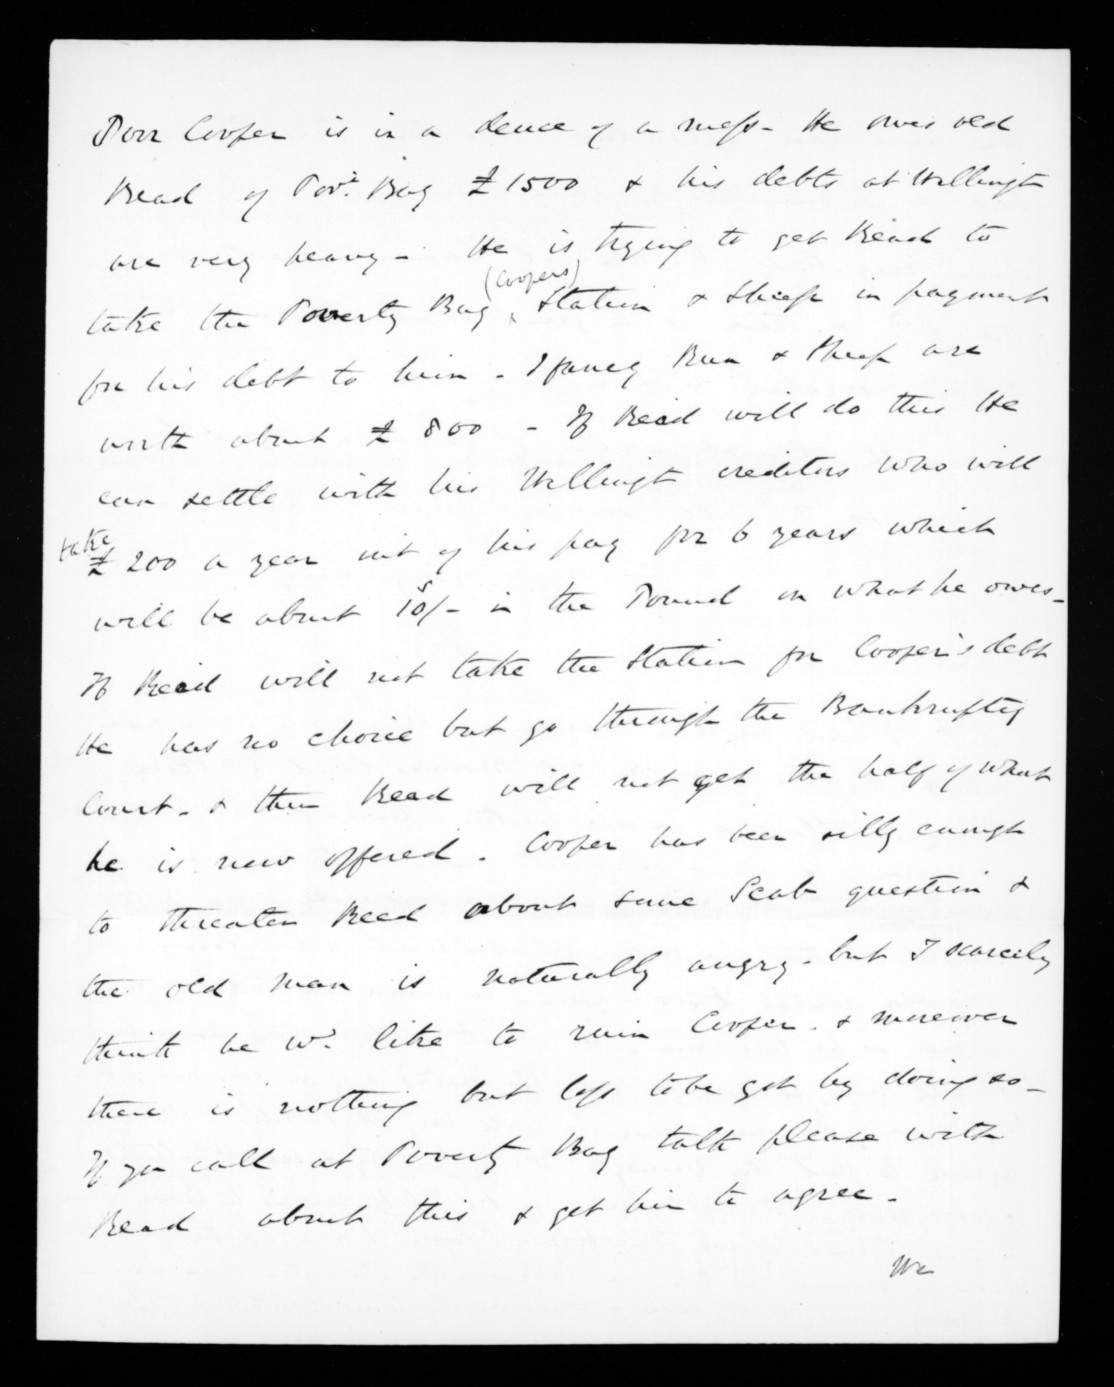 Poor Cooper is in a deuce of a mess - He owes old
Read of Povy. Bay £1500 & his debts at Wellingtn
are very heavy - He is trying to get Read to
take the Poverty Bay (Coopers) Station & Sheep in payment
for his debt to him - I fancy Run & Sheep are
worth about £800 - If Read will do this He
can settle with his Wellingtn creditors who will
take £200 a year out of his pay for 6 years which
will be about 10s/- in the Pound on what he owes -
If Read will not take the Station for Cooper's debt
He has no choice but go through the Bankruptcy
Court - & then Read will not get the half of what
he is now offered. Cooper has been silly enough
to threaten Reed about some Scab question &
the old man is naturally angry - but I scarcely
think he wd. like to ruin Cooper. & moreover
there is nothing but loss to be got by doing so -
If you call at Poverty Bay talk please with
Read about this & get him to agree -
We